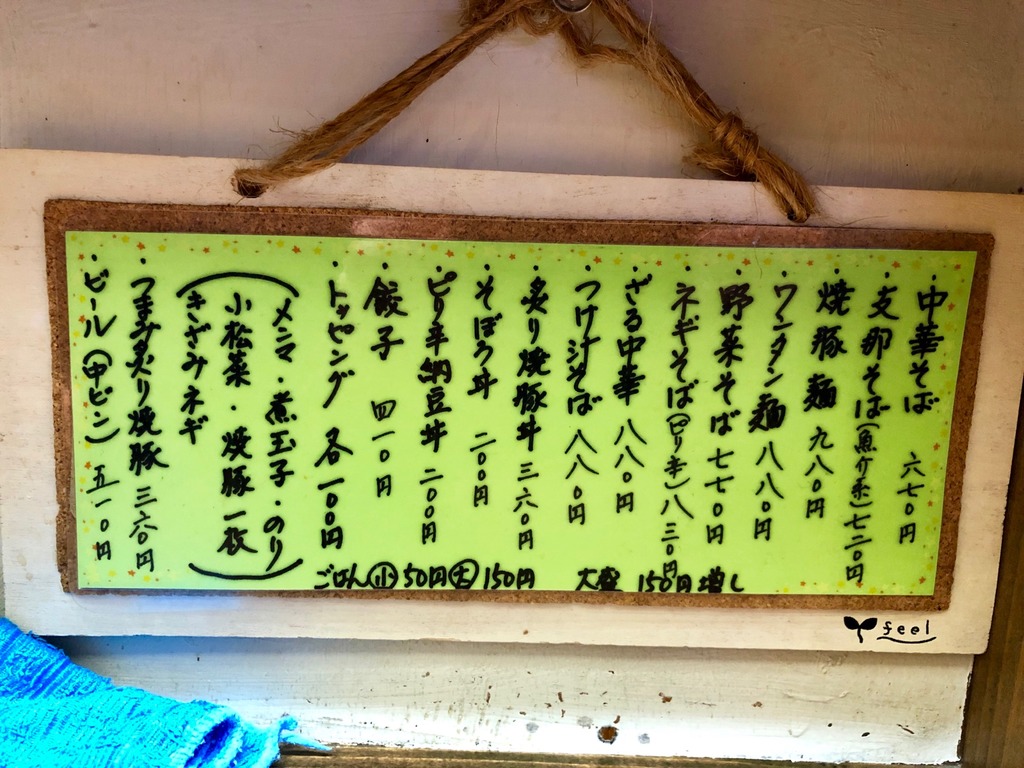 ・中華そば 六七〇円
・支那そば(魚介系)七二〇円
・焼豚麺 九八〇円
・ワンタン麺 八八〇円
・野菜そば 七七〇円
・ネギそば(ピリ辛)八三〇円
・ざる中華 八八〇円
・つけ汁そば 八八〇円
・炙り焼豚丼 三六〇円
・そぼろ丼 二〇〇円
・ピリ辛納豆丼 二〇〇円
・餃子 四一〇円
・トッピング 各一〇〇円
(メンマ・煮玉子・のり
小松菜・焼豚一枚
きざみネギ)
・つまみ炙り焼豚 三六〇円
・ビール(中ビン) 五一〇円
ごはん小50円大150円 大盛 150円増し
feel